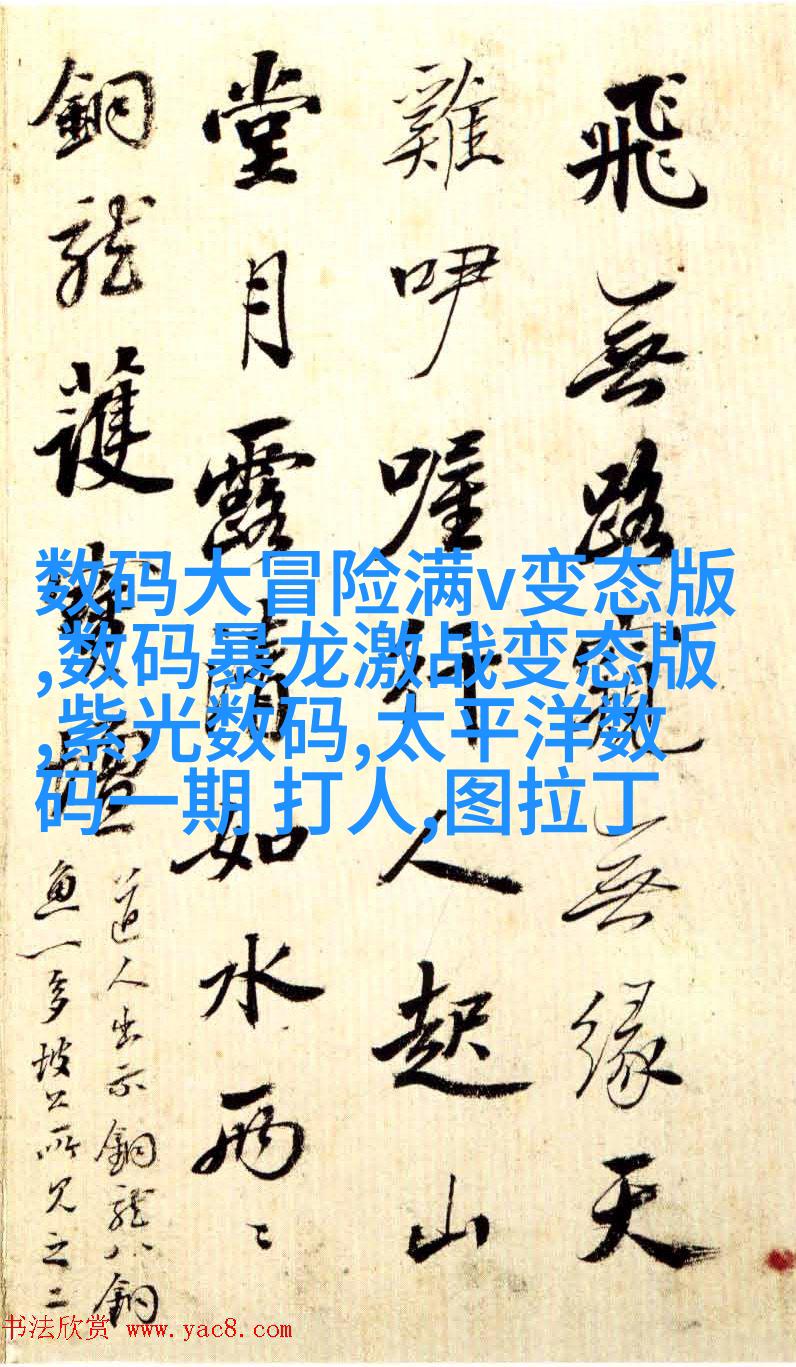 飛無路窺無緣天
雞咿喔行人起山
堂月露如水兩〻
銅龍護寶壇
道人出示銅龍八銅
魚一多坡公所見之二
数码大冒险满v变态版
,数码暴龙激战变态版
,紫光数码,太平洋数
码一期 打人,图拉丁
书法欣赏 www.yac8.com